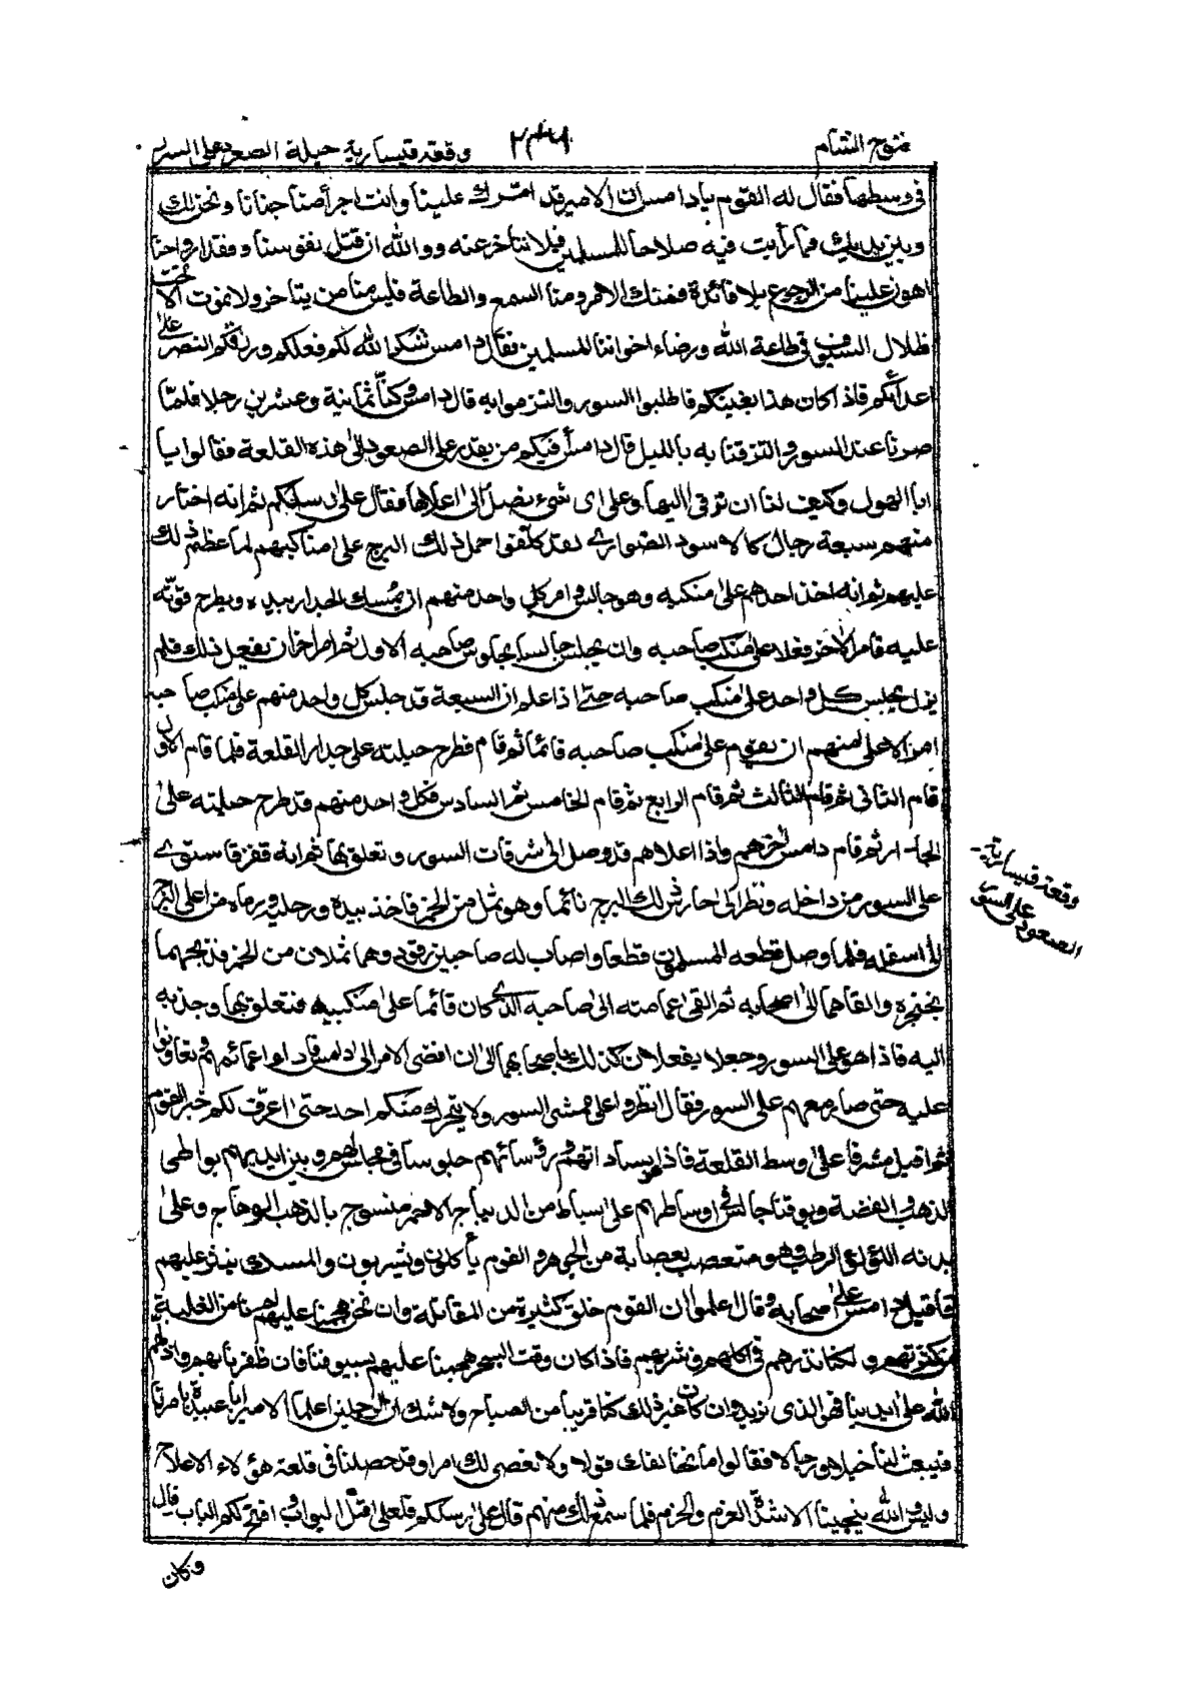 فتوح الشام
٢٣٦
وقعة قيسارية حيلة الصعود على السور
فى وسطها فقال له القوم يا دامس ان الامير قد امرك علينا وانت اجرأ منا جنانا ونحن لك
وبين يديك فما رأيت فيه صلاحا للمسلمين فلا نتأخر عنه ووالله ان قتل نفوسنا وفقد ارواحنا
اهون علينا من الرجوع بلا فائدة فمنك الامر ومنا السمع والطاعة فليس منا من يتأخر ولا نموت الا تحت
ظلال السيوف فى طاعة الله ورضاء اخواننا المسلمين فقال دامس شكر الله لكم فعلكم ورزقكم النصر على
اعدائكم فاذا كان هذا بغيتكم فاطلبوا السور والتزموا به قال دامس وكنا ثمانية وعشرين رجلا فلما
صرنا عند السور والتزقنا به بالليل قال دامس أفيكم من يقدر على الصعود الى هذه القلعة فقالوا يا
ابا الهول وكيف لنا ان نرقى اليها وعلى اى شىء نصل الى اعلاها فقال على رسلكم ثم انه اختار
منهم سبعة رجال كالاسود الضوارى لقد كلفوا حمل ذلك البرج على مناكبهم لما عظم ذلك
عليهم ثم انه اخذ احدهم على منكبه وهو جالس وامر كل واحد منهم ان يمسك الجدار بيده ويطرح قوته
عليه قام الآخر فعلا على منكب صاحبه وان يجلس جالسا بجلوس صاحبه الاول ثم امر اخر ان يفعل ذلك فلم
يزل يجلس كل واحد على منكب صاحبه حتى اذا علم ان السبعة قد جلس كل واحد منهم على منكب صاحبه
امر الاعلى منهم ان يقوم على منكب صاحبه قائما ثم قام فطرح حيلته على جدار القلعة فلما قام الاول
قام الثانى ثم قام الثالث ثم قام الرابع ثم قام الخامس ثم السادس فكل واحد منهم قد طرح حيلته على
الجدار ثم قام دامس آخرهم واذا اعلاهم قد وصل الى شرفات السور وتعلق بها ثم انه قفز فاستوى
على السور من داخله ونظر الى حارس ذلك البرج نائما وهو ثمل من الخمر فاخذ بيده ورجليه ورماه من اعلى البرج
الى اسفله فلما وصل قطعه المسلمون قطعا واصاب له صاحبين رقود وهما ثملان من الخمر فذبحهما
بخنجره والقاهما الى اصحابه ثم القى عمامته الى صاحبه الذى كان قائما على منكبيه فتعلق بها وجذبه
اليه فاذا هو على السور وجعلا يفعلان كذلك باصحابهما الى ان افضى الامر الى دامس فادلوا عمائمهم وتعاونوا
عليه حتى صار معهم على السور فقال انظروا على ممشى السور ولا يتحرك منكم احد حتى اعرف لكم خبر القوم
ثم اقبل مشرفا على وسط القلعة فاذا بساداتهم ورؤسائهم جلوسا فى مجالسهم وبين ايديهم بواطى
الذهب والفضة ويوقنا جالس فى اوساطهم على بساط من الديباج الاحمر منسوج بالذهب الوهاج وعلى
بدنه اللؤلؤ الرطب وهو متعصب بعصابة من الجوهر والقوم يأكلون ويشربون والمسك ينثر عليهم
فاقبل دامس على اصحابه وقال اعلموا ان القوم خلق كثيرة من المقاتلة وان نحن هجمنا عليهم لم نأمن من الغلبة
من كثرتهم ولكنا نذرهم فى اكلهم وشربهم فاذا كان وقت السحر هجمنا عليهم بسيوفنا فان ظفرنا بهم واذلهم
الله على ايدينا فهو الذى نريد وان كان غير ذلك كنا قريبا من الصباح ولا شك ان الرجلين اعلما الامير ابا عبيدة بامرنا
فيبعث لنا خيلا ورجالا فقالوا ما نخالفك قولا ولا نعصى لك امرا وقد حصلنا فى قلعة هؤلاء الاعلاج
وليس والله ينجينا الا شدة العزم والحزم فلما سمع ذلك منهم قال على رسلكم فلعلى اقتل البواب وافتح لكم الباب قال
وقعة قيسارية
الصعود على السور
وكان